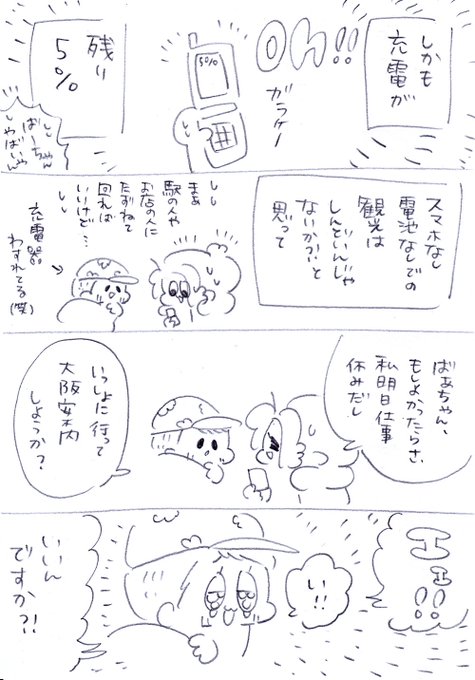 しかも
充電が
OH!!
ガラケー
5%
残り
5%
ばーちゃん
しゃばいやん
スマホなし
電池なしでの
観光は
しんどいんじゃ
ないか?と
思って
まぁ
駅の人や
お店の人に
たずねて
回れば
いいけど…
充電器
わすれてる(笑)
ばぁちゃん、
もしよかったらさ、
私明日仕事
休みだし
いっしょに行って
大阪案内
しようか?
エエ!!
い!!
いいん
ですか?!